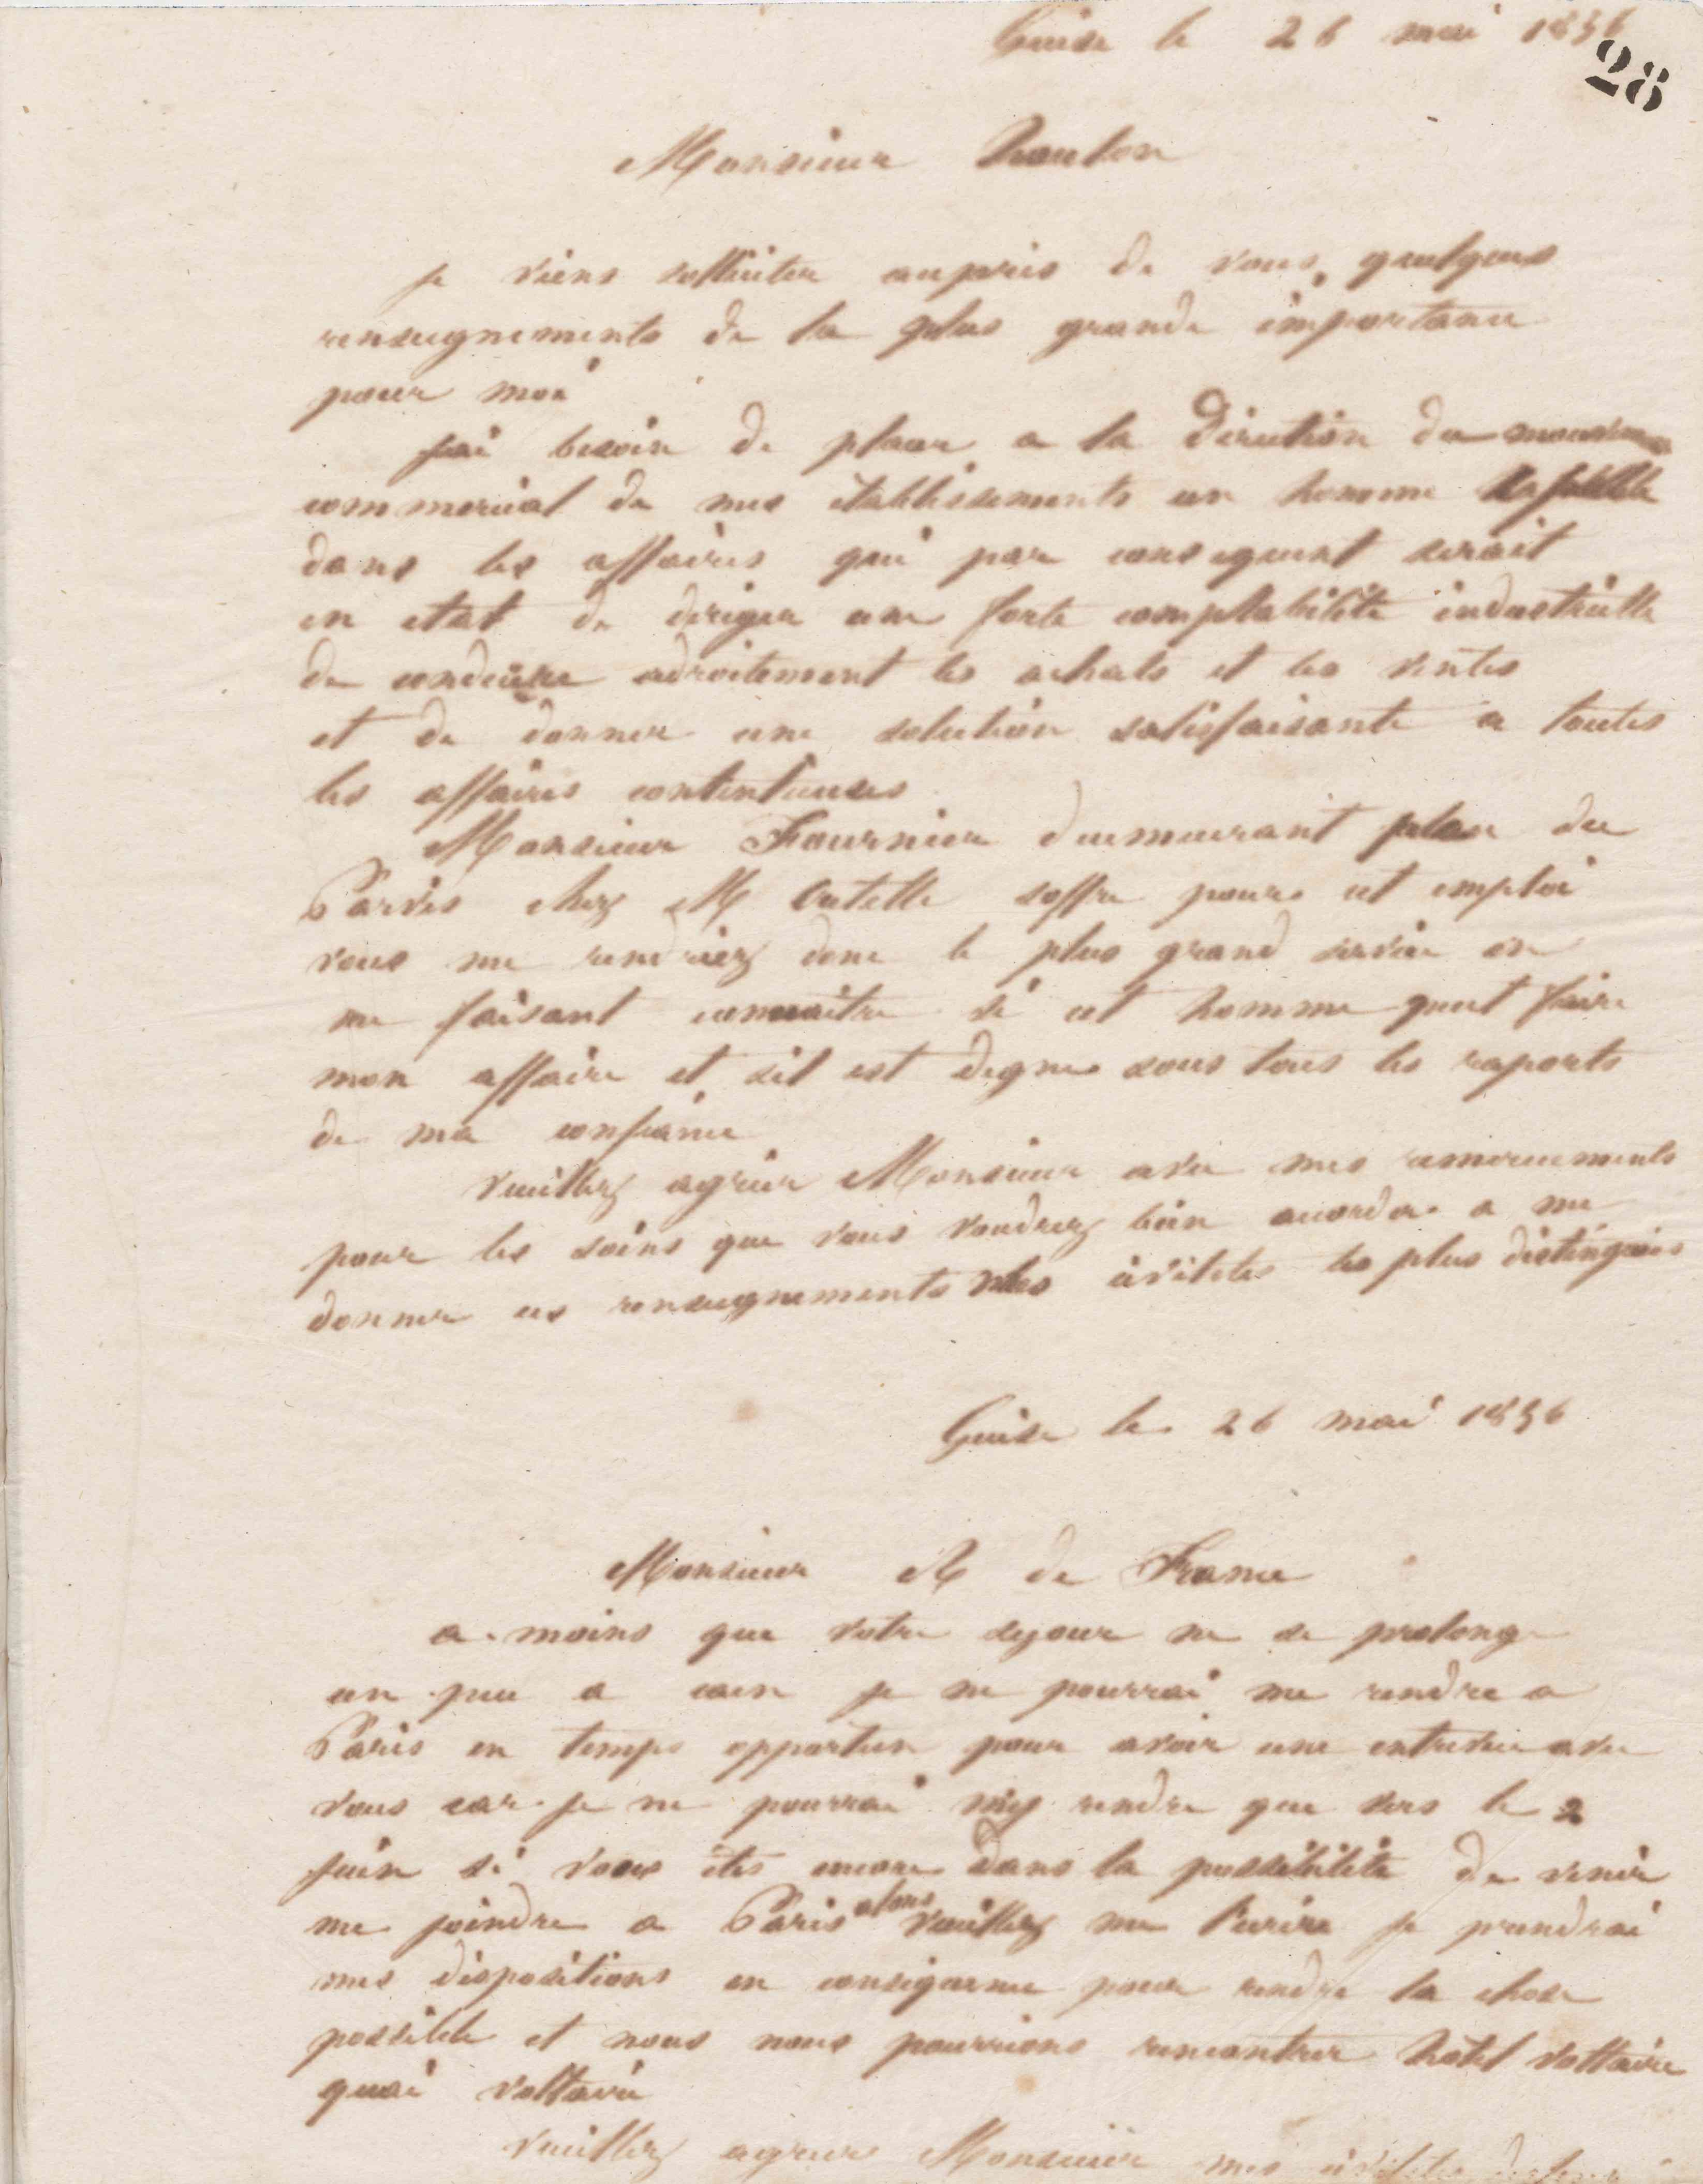 Guise le 26 mai 1856
28
Monsieur
je viens solliciter aupris de vous quelques
renseignements de la plus grande importance
pour moi
jai besoin de placer a la direction du
commercial de mes établissements un homme
dans les affaires qui par consequent serait
en etat de diriger une forte comptabilité industrielle
de conduire adroitement les achats et les ventes
et de donner une solution satisfaisante a toutes
les affaires contentieuses
Monsieur Fournier demeurant place du
Parvis chez M soffre pour cet emploi
vous me rendriez donc le plus grand service en
me faisant connaitre si cet homme peut faire
mon affaire et sil est digne sous tous les raports
de ma confiance
veuillez agréer Monsieur avec mes remerciements
pour les soins que vous voudrez bien accorder a me
donner ces renseignements mes civilités les plus distinguées
Guise le 26 mai 1856
Monsieur R de France
a moins que votre sejour ne se prolonge
un peu a caen je ne pourrai me rendre a
Paris en temps opportun pour avoir une entrevue avec
vous car je ne pourrai my rendre que vers le 2
juin si vous êtes encore dans la possibilité de venir
me joindre a Paris alors veuillez me l'ecrire je prendrai
mes dispositions en consequence pour rendre la chose
possible et nous nous pourrions rencontrer hotel voltaire
quai voltaire
veuillez agreer Monsieur mes civilités